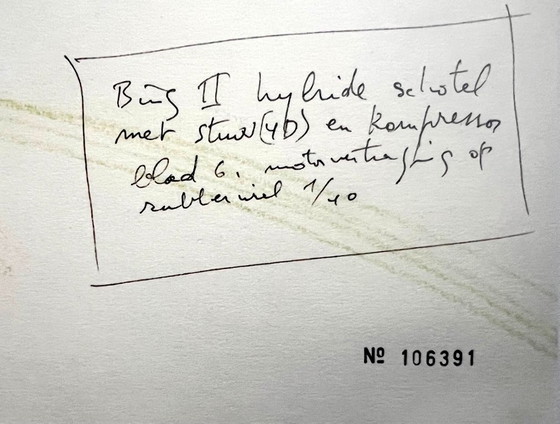 Bing II hybride schotel
met stuur (4D) en kompressor
blad 6. motorvertraging op
rubberwiel 1/40
Nº 106391